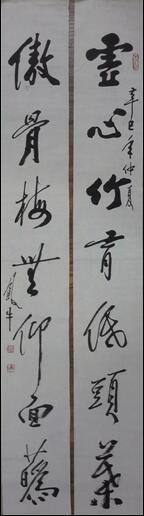 虛心竹有低頭葉
辛巳年仲夏
傲骨梅無仰面蘤